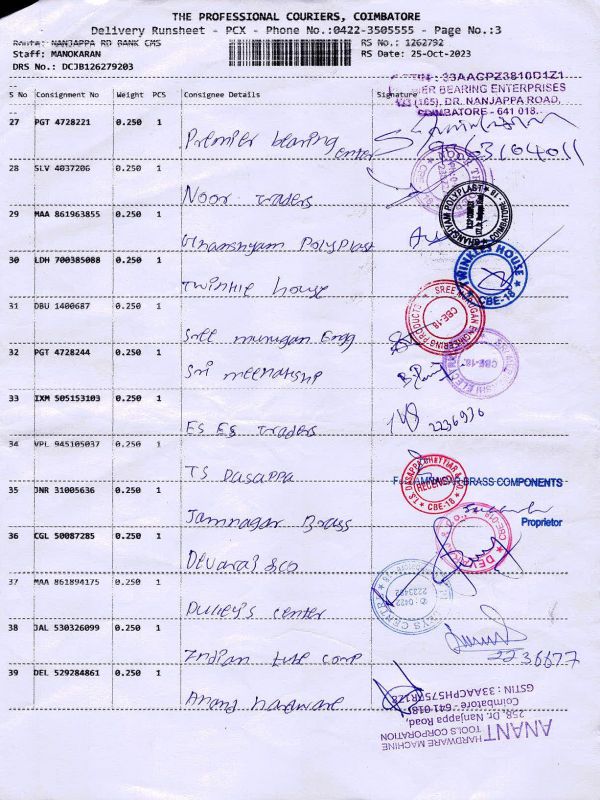 THE PROFESSIONAL COURIERS, COIMBATORE
Delivery Runsheet - PCX - Phone No.:0422-3505555 - Page No.:3
Route: NANJAPPA RD BANK CMS RS No.: 1262792
Staff: MANOKARAN RS Date: 25-Oct-2023
DRS No.: DCJB126279203
GSTIN : 33AAGPZ3810D1Z1
BEARING ENTERPRISES
(165), DR. NANJAPPA ROAD,
COIMBATORE - 641 018.
S No Consignment No Weight PCS Consignee Details Signature
27 PGT 4728221 0.250 1 Premier bearing enter 9363164011
28 SLV 4037206 0.250 1 Noor traders
29 MAA 861963855 0.250 1 Ghanshyam Polyplast
GHANSHYAM POLYPLAST
30 LDH 700385088 0.250 1 Twinkle house
TWINKLES HOUSE CBE-18
31 DBU 1400687 0.250 1 Sree murugan Engg
SREE MURUGAN ENGINEERING PRODUCTS CBE-18
32 PGT 4728244 0.250 1 Sri meenakshi
CBE-18.
33 IXM 505153103 0.250 1 ES ES traders 2236936
34 VPL 945105037 0.250 1 TS Dasappa
T.S. DASAPPA CHETTIAR & CO. RECEIVED CBE-18
35 JNR 31005636 0.250 1 Jamnagar Brass
JAMNAGAR BRASS COMPONENTS
Proprietor
36 CGL 50087285 0.250 1 Devaraj & co
37 MAA 861894175 0.250 1 Dukey's center
38 JAL 530326099 0.250 1 Indian tube comp 2236677
39 DEL 529284861 0.250 1 Anand hardware
ANANT
HARDWARE MACHINE
TOOLS CORPORATION
258, Dr. Nanjappa Road,
Coimbatore - 641 018
GSTIN : 33AACPH5758R1Z8